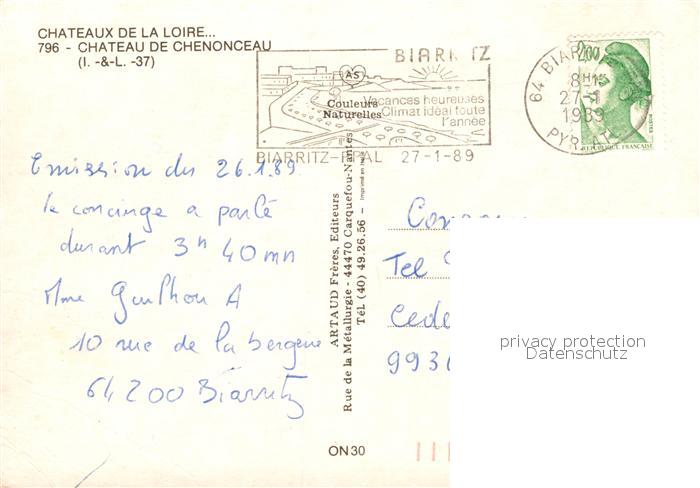 CHATEAUX DE LA LOIRE...
796 - CHATEAU DE CHENONCEAU
(I. -&-L. -37)
BIARRITZ
AS
Couleurs
Naturelles
Vacances heureuses
Climat idéal toute
l'année
BIARRITZ-PPAL 27-1-89
64 BIARRITZ
8H15
27-1
1989
PYR. AT.
2,00
POSTES
REPUBLIQUE FRANÇAISE
Emission du 26.1.89
le concierge a parlé
durant 3h 40mn
Mme Guilhou A
10 rue de la bergerie
64200 Biarritz
ARTAUD Frères, Editeurs
Rue de la Métallurgie - 44470 Carquefou-Nantes
Tél. (40) 49.26.56 - Imprimé en
Tel
Cede
9936
privacy protection
Datenschutz
ON30